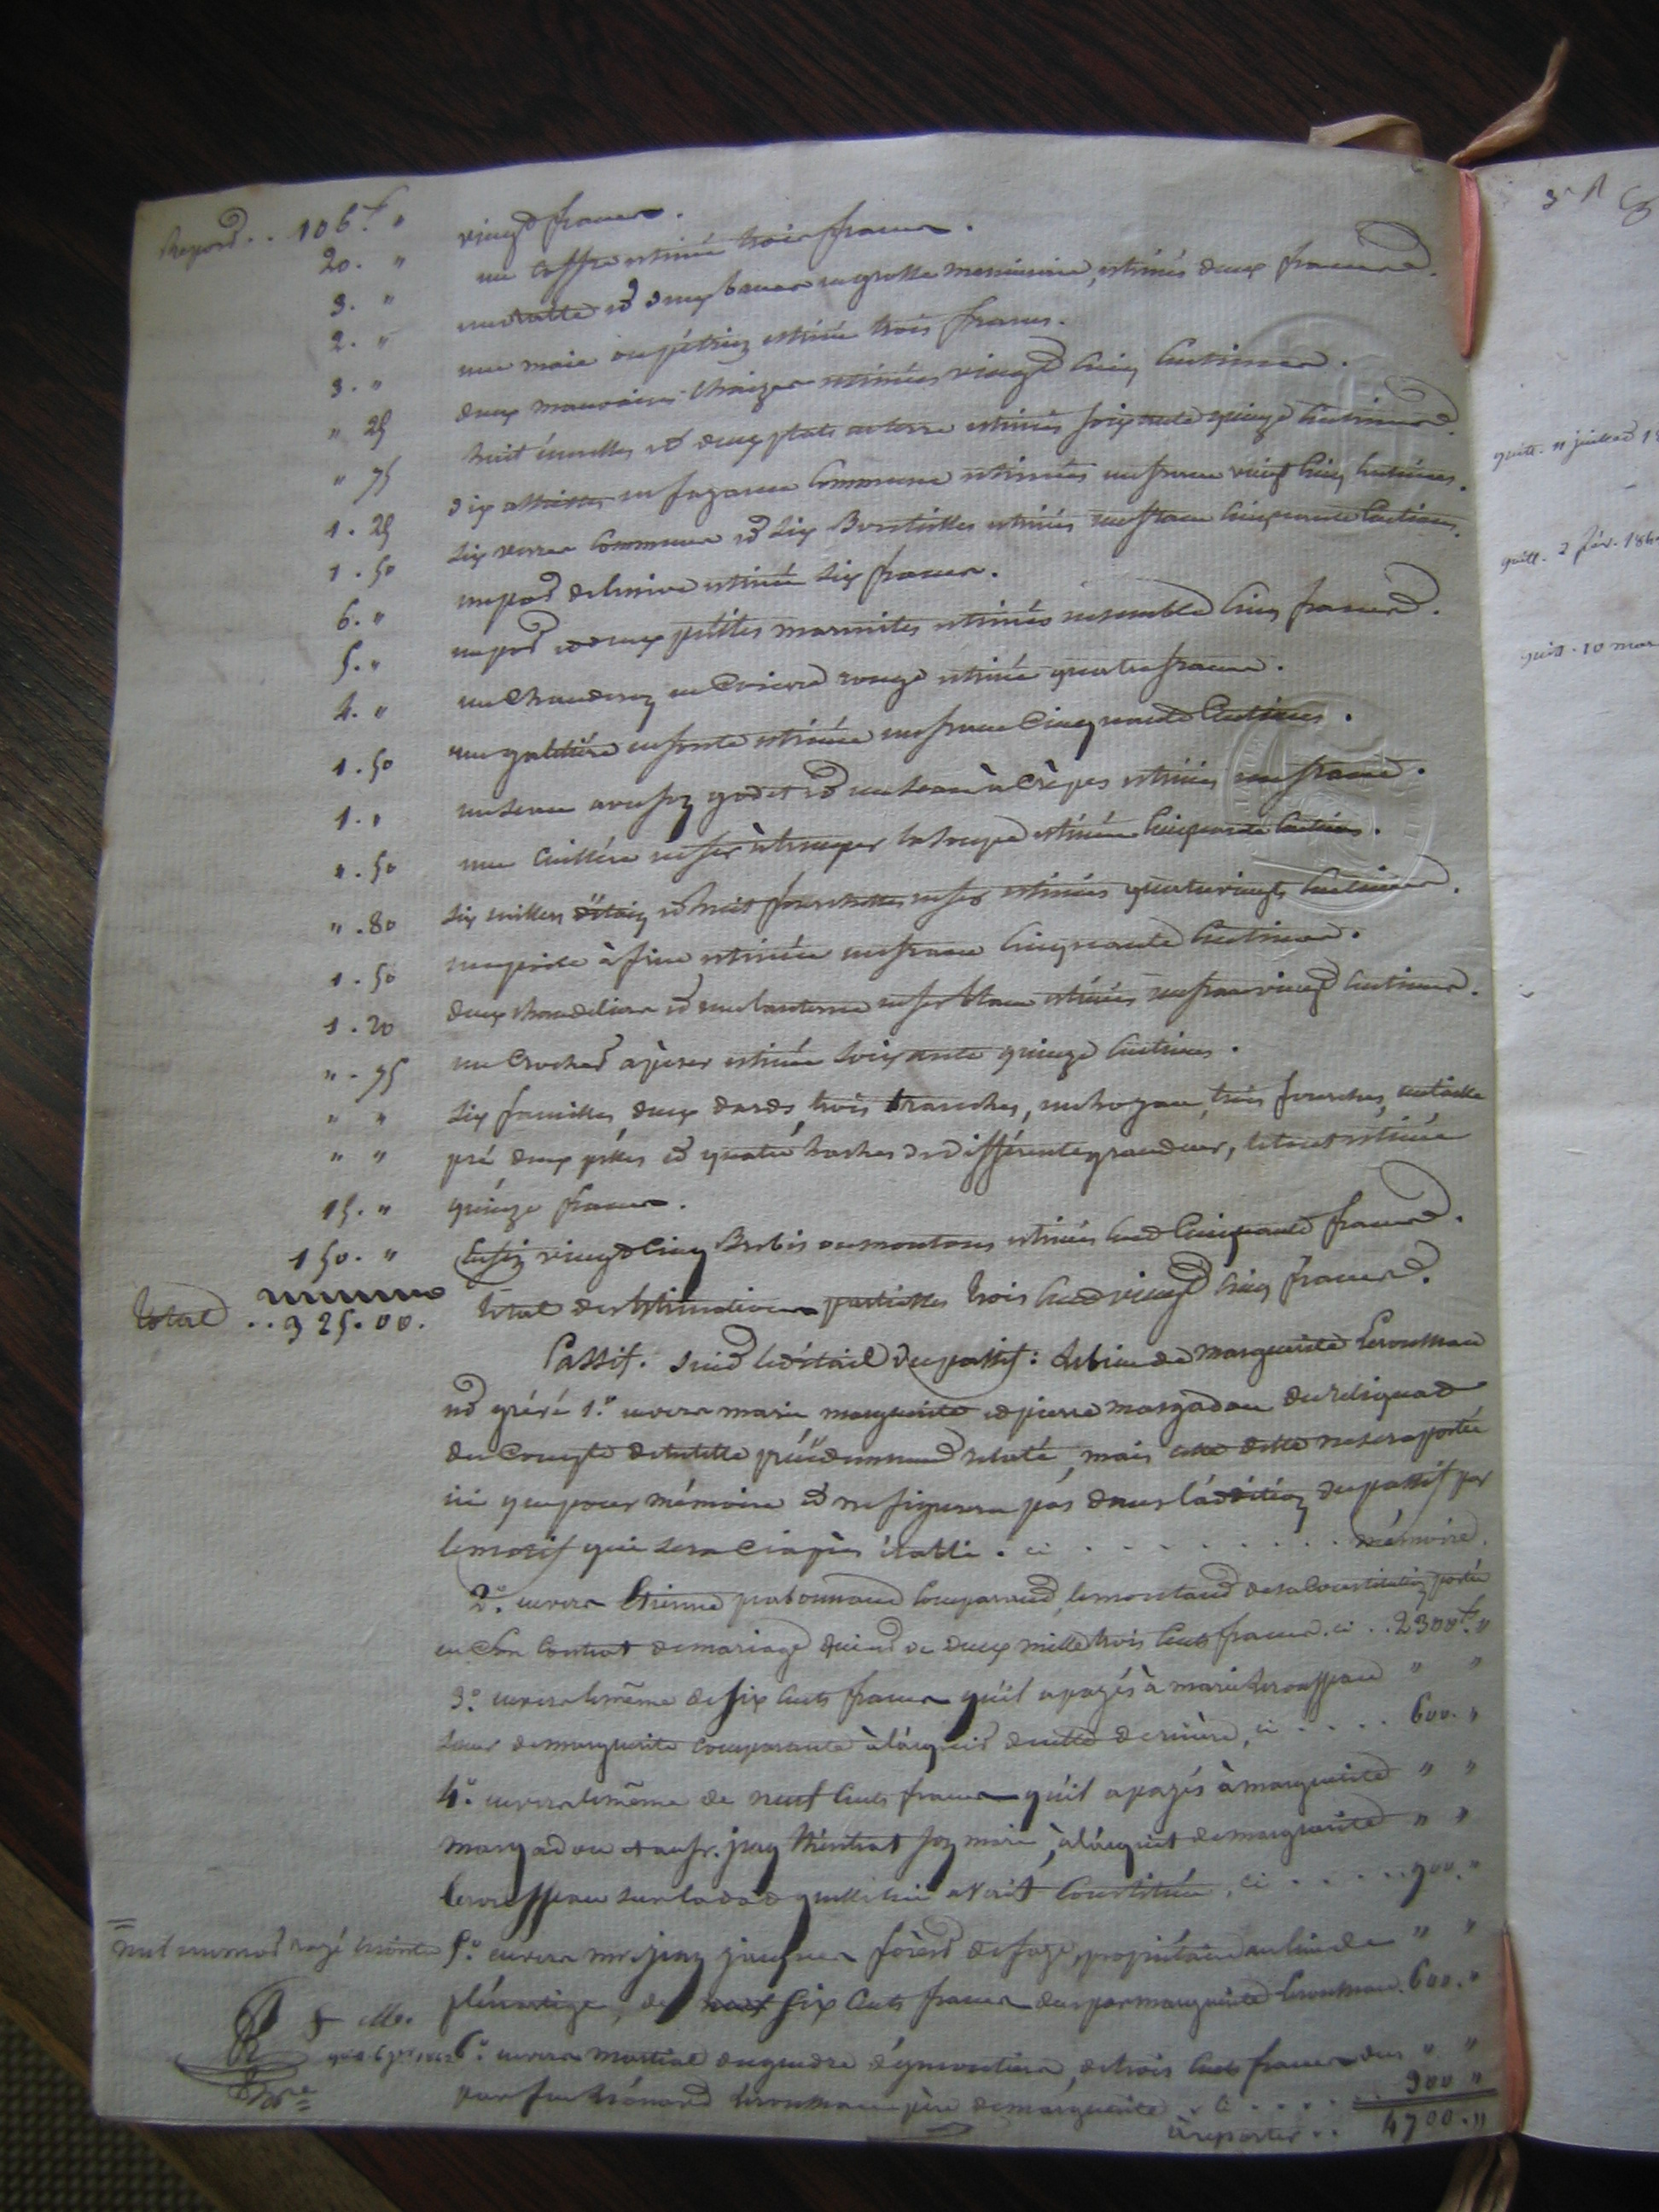 Report .. 106.f "
20. " vingt francs.
3. " un coffre estimé trois francs.
2. " une table et deux bancs en grosse menuiserie, estimés deux francs.
3. " une maie ou pétrin estimée trois francs.
" 25 deux mauvaises chaizes estimées vingt cinq centimes.
" 75 huit écuelles et deux plats en terre estimés soixante quinze centimes.
1. 25 dix assiettes en fayance commune estimées un franc vingt cinq centimes.
1. 50 six verres communs et six bouteilles estimés un franc cinquante centimes.
6. " un pot de cuivre estimé six francs.
5. " un pot et deux petites marmites estimés ensemble cinq francs.
4. " un chauderon en cuivre rouge estimé quatre francs.
1. 50 une galetière en fonte estimée un franc cinquante centimes.
1. " un seau avec son godet et un seau à crèpes estimés un franc.
". 50 une cuillère en fer à tremper la soupe estimée cinquante centimes.
". 80 six cuillers d'étain et huit fourchettes en fer estimées quatrevingts centimes.
1. 50 une poele à frire estimée un franc cinquante centimes.
1. 20 deux chandeliers et une lanterne en fer blanc estimés un franc vingt centimes.
". 75 un crochet à peser estimé soixante quinze centimes.
" " six faucilles, deux dards, trois tranches, un hoyau, trois fourches, une taille
" " pré deux pelles et quatre haches de différente grandeur, le tout estimée
15. " quinze francs.
150. " Enfin vingt cinq Brebis ou moutons estimés cent cinquante francs.
Total .. 325.00. Total des estimations partielles trois cent vingt cinq francs.
Passif. Suit le détail du passif: Les biens de marguerite Lerousseau
est grévé 1.° envers marie marguerite et pierre mazgadou du reliquat
du compte de tutelle précédemment relaté, mais cette dette ne sera portée
ici que pour mémoire et ne figurera pas dans l'addition du passif par
le motif qui sera ci après établi. ci . . . . . . . . . mémoire.
2.° envers Etienne prabonnaud comparant, le montant de sa constitution portée
en son contrat de mariage qui est de deux mille trois cents francs. ci .. 2300f. "
3.° envers le même de six cents francs qu'il a payés à marie Lerousseau " "
sœur de marguerite comparante à l'acquit de cette dernière, ci . . . . 600. "
4.° envers le même de neuf cents francs qu'il a payés à marguerite " "
mazgadou et au sr. jean son mari, à l'acquit de marguerite " "
Lerousseau sur la dot qu'elle lui avait constituée, ci . . . . . 900. "
5.° envers mr. jean jacques forest de faye, propriétaire au lieu de " "
plénartige, de neuf six cents francs dus par marguerite Lerousseau. 600. "
6.° envers martial d'eymoutiers, de trois cents francs dus " "
par feu Léonard Lerousseau père de marguerite. ci . . . . 300 "
à reporter .. 4700. "
nul un mot rayé ci contre
quitt. 11 juillet
quitt. 2 fév. 186
quitt. 10 mar